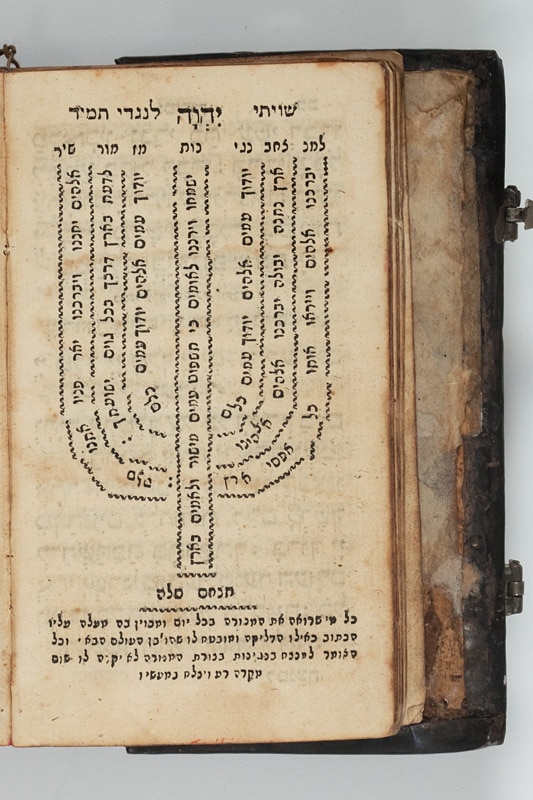 שויתי יְהֹוָה לנגדי תמיד
למנ צחב נגי נות מז מור שיר
יברכנו אלהים וייראו אותו כל אפסי ארץ
ארץ נתנה יבולה יברכנו אלהים אלהינו
יודוך עמים אלהים יודוך עמים כלם
ישמחו וירננו לאומים כי תשפוט עמים מישור ולאמים בארץ
יודוך עמים אלהים יודוך עמים כלם
לדעת בארץ דרכך בכל גוים ישועתך:
אלהים יחננו ויברכנו יאר פניו אתנו סלה:
תנחם סלה
כל מי שרואה את המנורה בכל יום ומכוין בה מעלה עליו
הכתוב כאילו הדליקה ומובטח לו שהו׳ בן העולם הבא׳ וכל
האומר למנצח בנגינות בצורת המנורה לא יקרה לו שום
מקרה רע ויצלח במעשיו